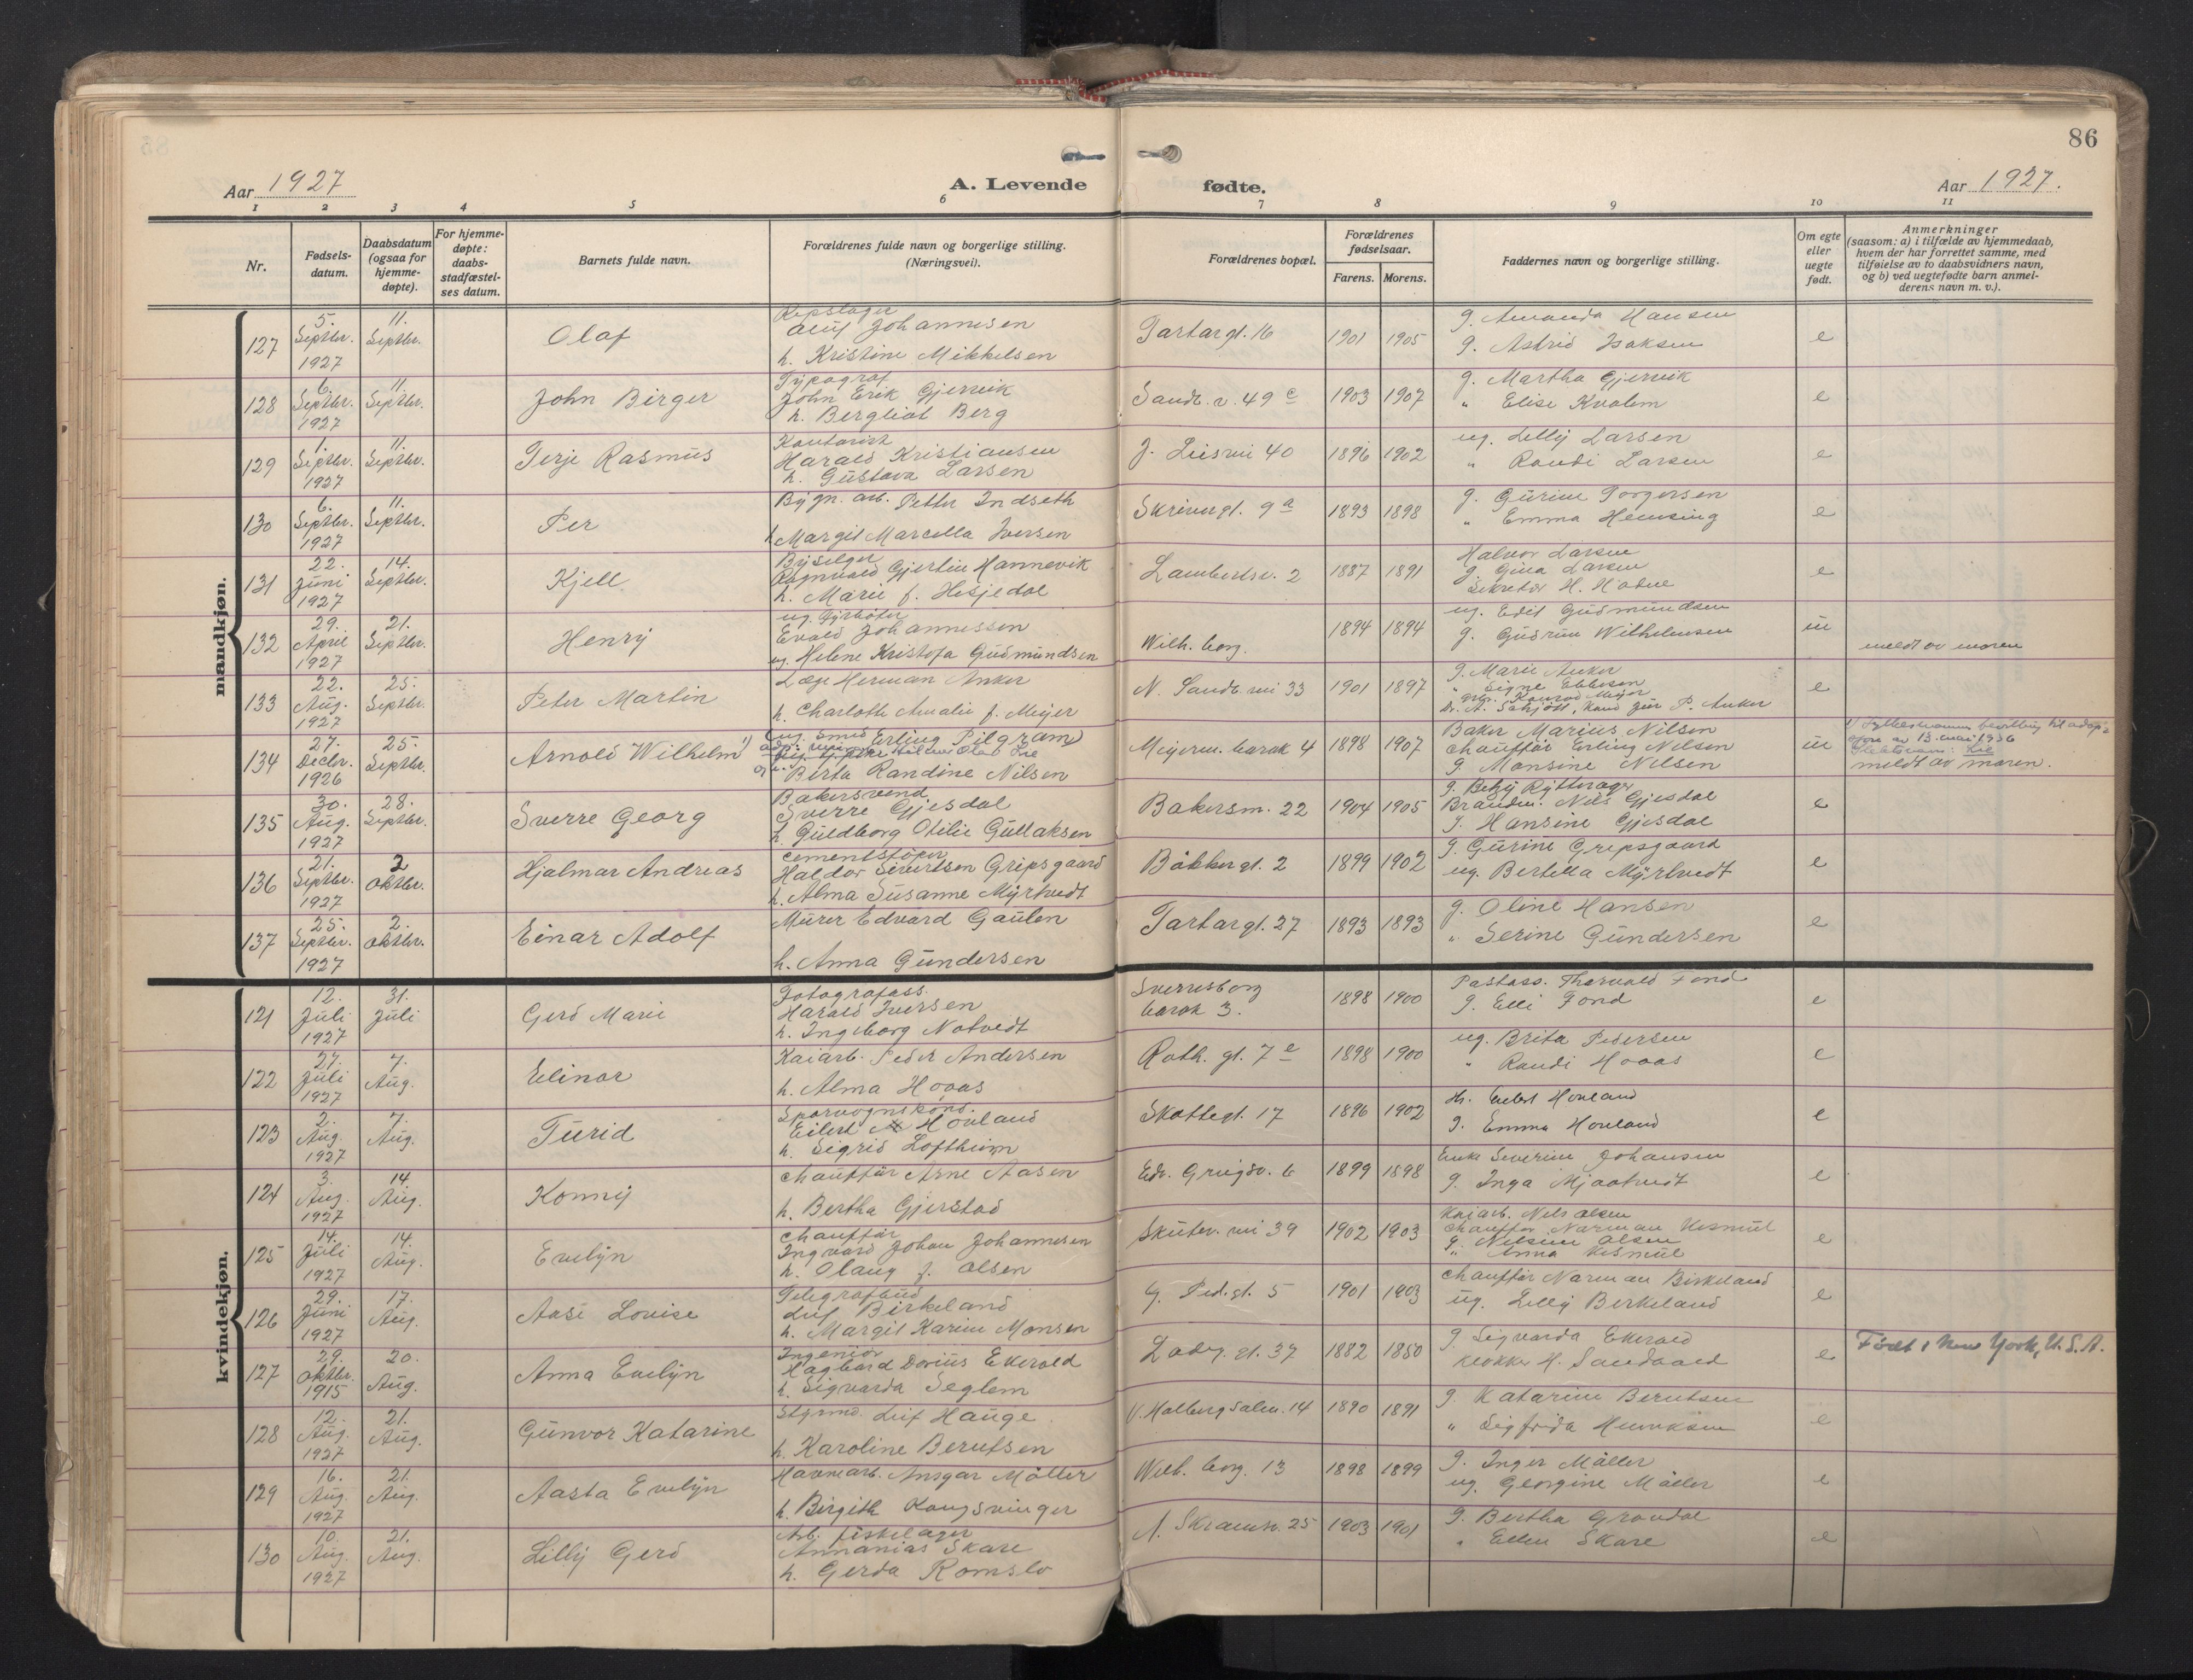 86
Aar 1927
A. Levende
fødte.
Aar 1927.
1 2 3 4 5 6 7 8 9 10 11
Nr.
Fødsels-
datum.
Daabsdatum
(ogsaa for
hjemme-
døpte).
For hjemme-
døpte:
daabs-
stadfæstel-
ses datum.
Barnets fulde navn.
Forældrenes fulde navn og borgerlige stilling.
(Næringsvei).
Forældrenes bopæl.
Forældrenes
fødselsaar.
Farens. Morens.
Faddernes navn og borgerlige stilling.
Om egte
eller
uegte
født.
Anmerkninger
(saasom: a) i tilfælde av hjemmedaab,
hvem der har forrettet samme, med
tilføielse av to daabsvidners navn,
og b) ved uegtefødte barn anmel-
derens navn m. v.).
mandkjøn.
127
5. Septbr. 1927
11. Septbr.
Olaf
Repslager
Johannesen
h. Kristine Mikkelsen
Tartargt. 16
1901 1905
g. Amanda Hansen
g. Astrid Isaksen
e
128
6. Septbr. 1927
11. Septbr.
John Birger
Typograf
John Erik Gjervik
h. Bergliot Berg
Sandv. v. 49 c
1903 1907
g. Martha Gjervik
" Elise Kvalem
e
129
1. Septbr. 1927
11. Septbr.
Terje Rasmus
Kontorist
Harald Kristiansen
h. Gustava Larsen
J. Liesvei 40
1896 1902
ug. Lilly Larsen
" Randi Larsen
e
130
6. Septbr. 1927
11. Septbr.
Per
Bygn. arb. Petter Indseth
h. Margit Marcella Iversen
Skrivergt. 9a
1893 1898
g. Gurine Torgersen
" Emma Hemsing
e
131
22. Juni 1927
14. Septbr.
Kjell
Byselger
Ragnvald Gjertin Hannevik
h. Marie f. Hesjedal
Lambertsv. 2
1887 1891
Halvor Larsen
g. Gina Larsen
Sekretær H.
e
132
29. April 1927
21. Septbr.
Henry
ug. Fyrbøter
Evald Johannessen
ug. Helene Kristofa Gudmundsen
Wilh. borg.
1894 1894
ug. Edit Gudmundsen
g. Gudrun Wilhelmsen
u
meldt av moren
133
22. Aug. 1927
25. Septbr.
Peter Martin
Læge Herman Anker
h. Charlotte Amalie f. Meyer
N. Sandv. vei 33
1901 1897
g. Marie Anker
" Signe Ebbesen
Konrad Meyer
Dr. A. Schjött, Kand jur P. Anker
e
134
27. Decbr. 1926
25. Septbr.
Arnold Wilhelm 1)
(ug. Smed Erling Pilgram)
Olaf Lie
Birta Randine Nilsen
Meyerm. barak 4
1898 1907
Baker Marius Nilsen
chauffør Erling Nilsen
g. Monsine Nilsen
u
1) Fylkesmannens bevilling til adop-
sjon av 13. mai 1936
Slektsnavn: Lie
meldt av moren.
135
30. Aug. 1927
28. Septbr.
Sverre Georg
Bakersvend
Sverre Gjesdal
h. Guldborg Otilie Gullaksen
Bakersm. 22
1904 1905
g. Betzy Rytterager
Brandm. Nils Gjesdal
g. Hansine Gjesdal
e
136
21. Septbr. 1927
2 Oktbr.
Hjalmar Andreas
Cementstøper
Haldor Sivertsen Gripsgaard
h. Alma Susanne Myrtvedt
Båkkergt. 2
1899 1902
g. Gurine Gripsgaard
ug. Bertella Myrtvedt
e
137
25. Septbr. 1927
2. Oktbr.
Einar Adolf
Murer Edvard Gaulen
h. Anna Gundersen
Tartargt. 27
1893 1893
g. Oline Hansen
" Serine Gundersen
e
kvindekjøn.
121
12. Juli 1927
31. Juli
Gerd Marie
Fotografass.
Harald Iversen
h. Ingeborg Natvedt
Sverresborg
barak 3.
1898 1900
Postass. Thorvald Fond
g. Elli Fond
e
122
27. Juli 1927
7. Aug.
Elinor
Kaiarb. Peder Andersen
h. Alma Hovas
Roth. gt. 7 e
1898 1900
ug. Brita Pedersen
" Randi Hovas
e
123
2. Aug. 1927
7. Aug.
Turid
Sporvognskond.
Eilert Hovland
h. Sigrid Loftheim
Skottegt. 17
1896 1902
Hr. Eilert Hovland
g. Emma Hovland
e
124
3. Aug. 1927
14. Aug.
Konny
Chauffør Arne Aasen
h. Bertha Gjerstad
Edv. Griegsv. 6
1899 1898
Enke Severine Johansen
g. Inga Mjaatvedt
e
125
14. Juli 1927
14. Aug.
Evelyn
Chauffør
Ingvard Johan Johannesen
h. Olaug f. Olsen
Skutev. vei 39
1902 1903
Kaiarb. Nils Olsen
Chauffør Norman Kismul
g. Nilsine Olsen
" Anna Kismul
e
126
29. Juni 1927
17. Aug.
Aase Louise
Telegrafbud
Leif Birkeland
h. Margit Karine Monsen
G. Ped. gt. 5
1901 1903
Chauffør Norman Birkeland
ug. Lilly Berkeland
e
127
29. Oktbr. 1915
20. Aug.
Anna Evelyn
Ingeniør
Hagbard Dorius Ekerold
h. Sigvarda Seglem
Ladeg. gt. 37
1882 1880
g. Sigvarda Ekerold
Klokker H. Sandaard
e
Født i New York, U.S.A.
128
12. Aug. 1927
21. Aug.
Gunvor Katarine
Styrmd. Leif Hauge
h. Karoline Berntsen
V. Holbergsalm. 14
1890 1891
g. Katarine Berntsen
" Sigfrida Henriksen
e
129
16. Aug. 1927
21. Aug.
Aasta Evelyn
Havnearb. Ansgar Møller
h. Birgith Kongsvinger
Wilh. borg. 13
1898 1899
g. Inger Møller
ug. Georgine Møller
e
130
10. Aug. 1927
21. Aug.
Lilly Gerd
Arb. fiskelager
Annanias Skare
h. Gerda Romslo
A. Skramsv. 25
1903 1901
g. Bertha Grondal
" Ellen Skare
e